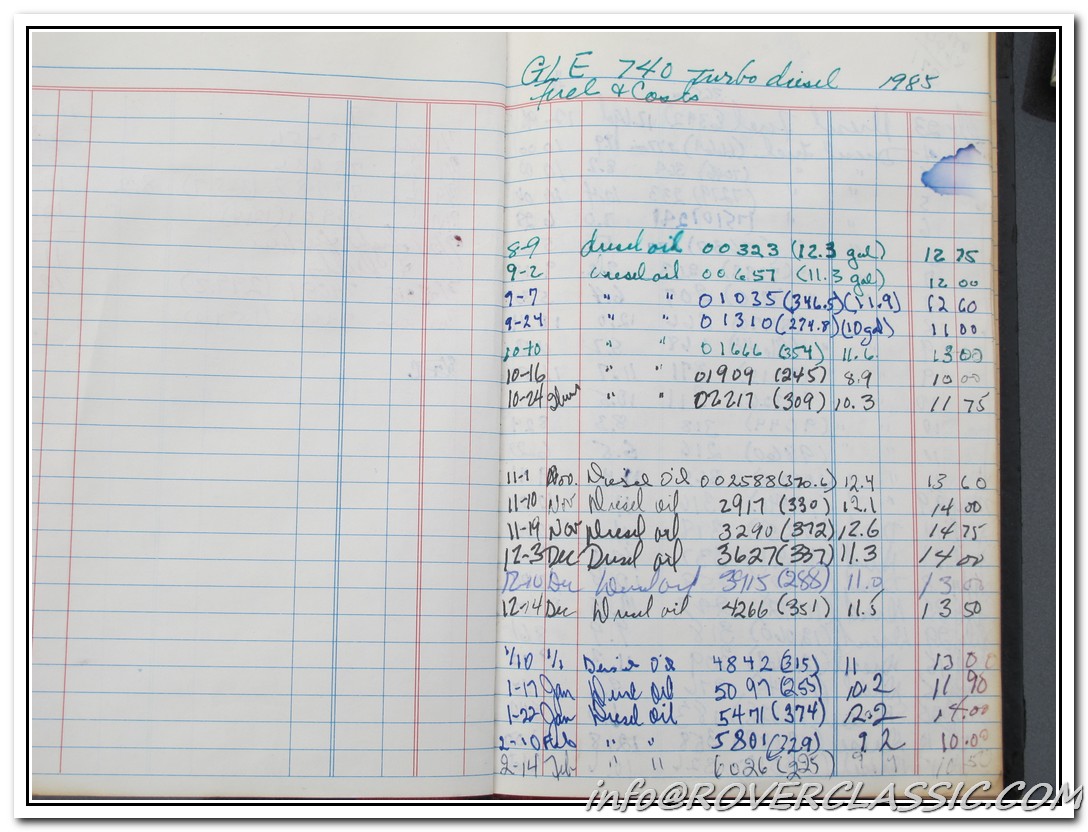 GLE 740 turbo diesel 1985
fuel & Costs
8-9 diesel oil 00323 (12.3 gal) 12 75
9-2 diesel oil 00657 (11.3 gal) 12 00
9-7 " " 01035 (346.5) (11.9) 12 60
9-24 " " 01310 (274.8) (10 gal) 11 00
10-10 " " 01666 (354) 11.6 13 00
10-16 " " 01909 (245) 8.9 10 00
10-24 " " 02217 (309) 10.3 11 75
11-1 Nov. Diesel Oil 002588 (370.6) 12.4 13 60
11-10 Nov Diesel oil 2917 (330) 12.1 14 00
11-19 Nov Diesel oil 3290 (372) 12.6 14 75
12-3 Dec Diesel oil 3627 (337) 11.3 14 00
12-10 Dec Diesel oil 3915 (288) 11.0 13 00
12-14 Dec Diesel oil 4266 (351) 11.5 13 50
1/10 1/1 Diesel Oil 4842 (315) 11 13 00
1-17 Jan Diesel Oil 5097 (255) 10.2 11 90
1-22 Jan Diesel Oil 5471 (374) 12.2 14.00
2-10 Feb " " 5801 (329) 9 2 10.00
2-14 Feb " " 6026 (225) 10 50
info@ROVERCLASSIC.COM